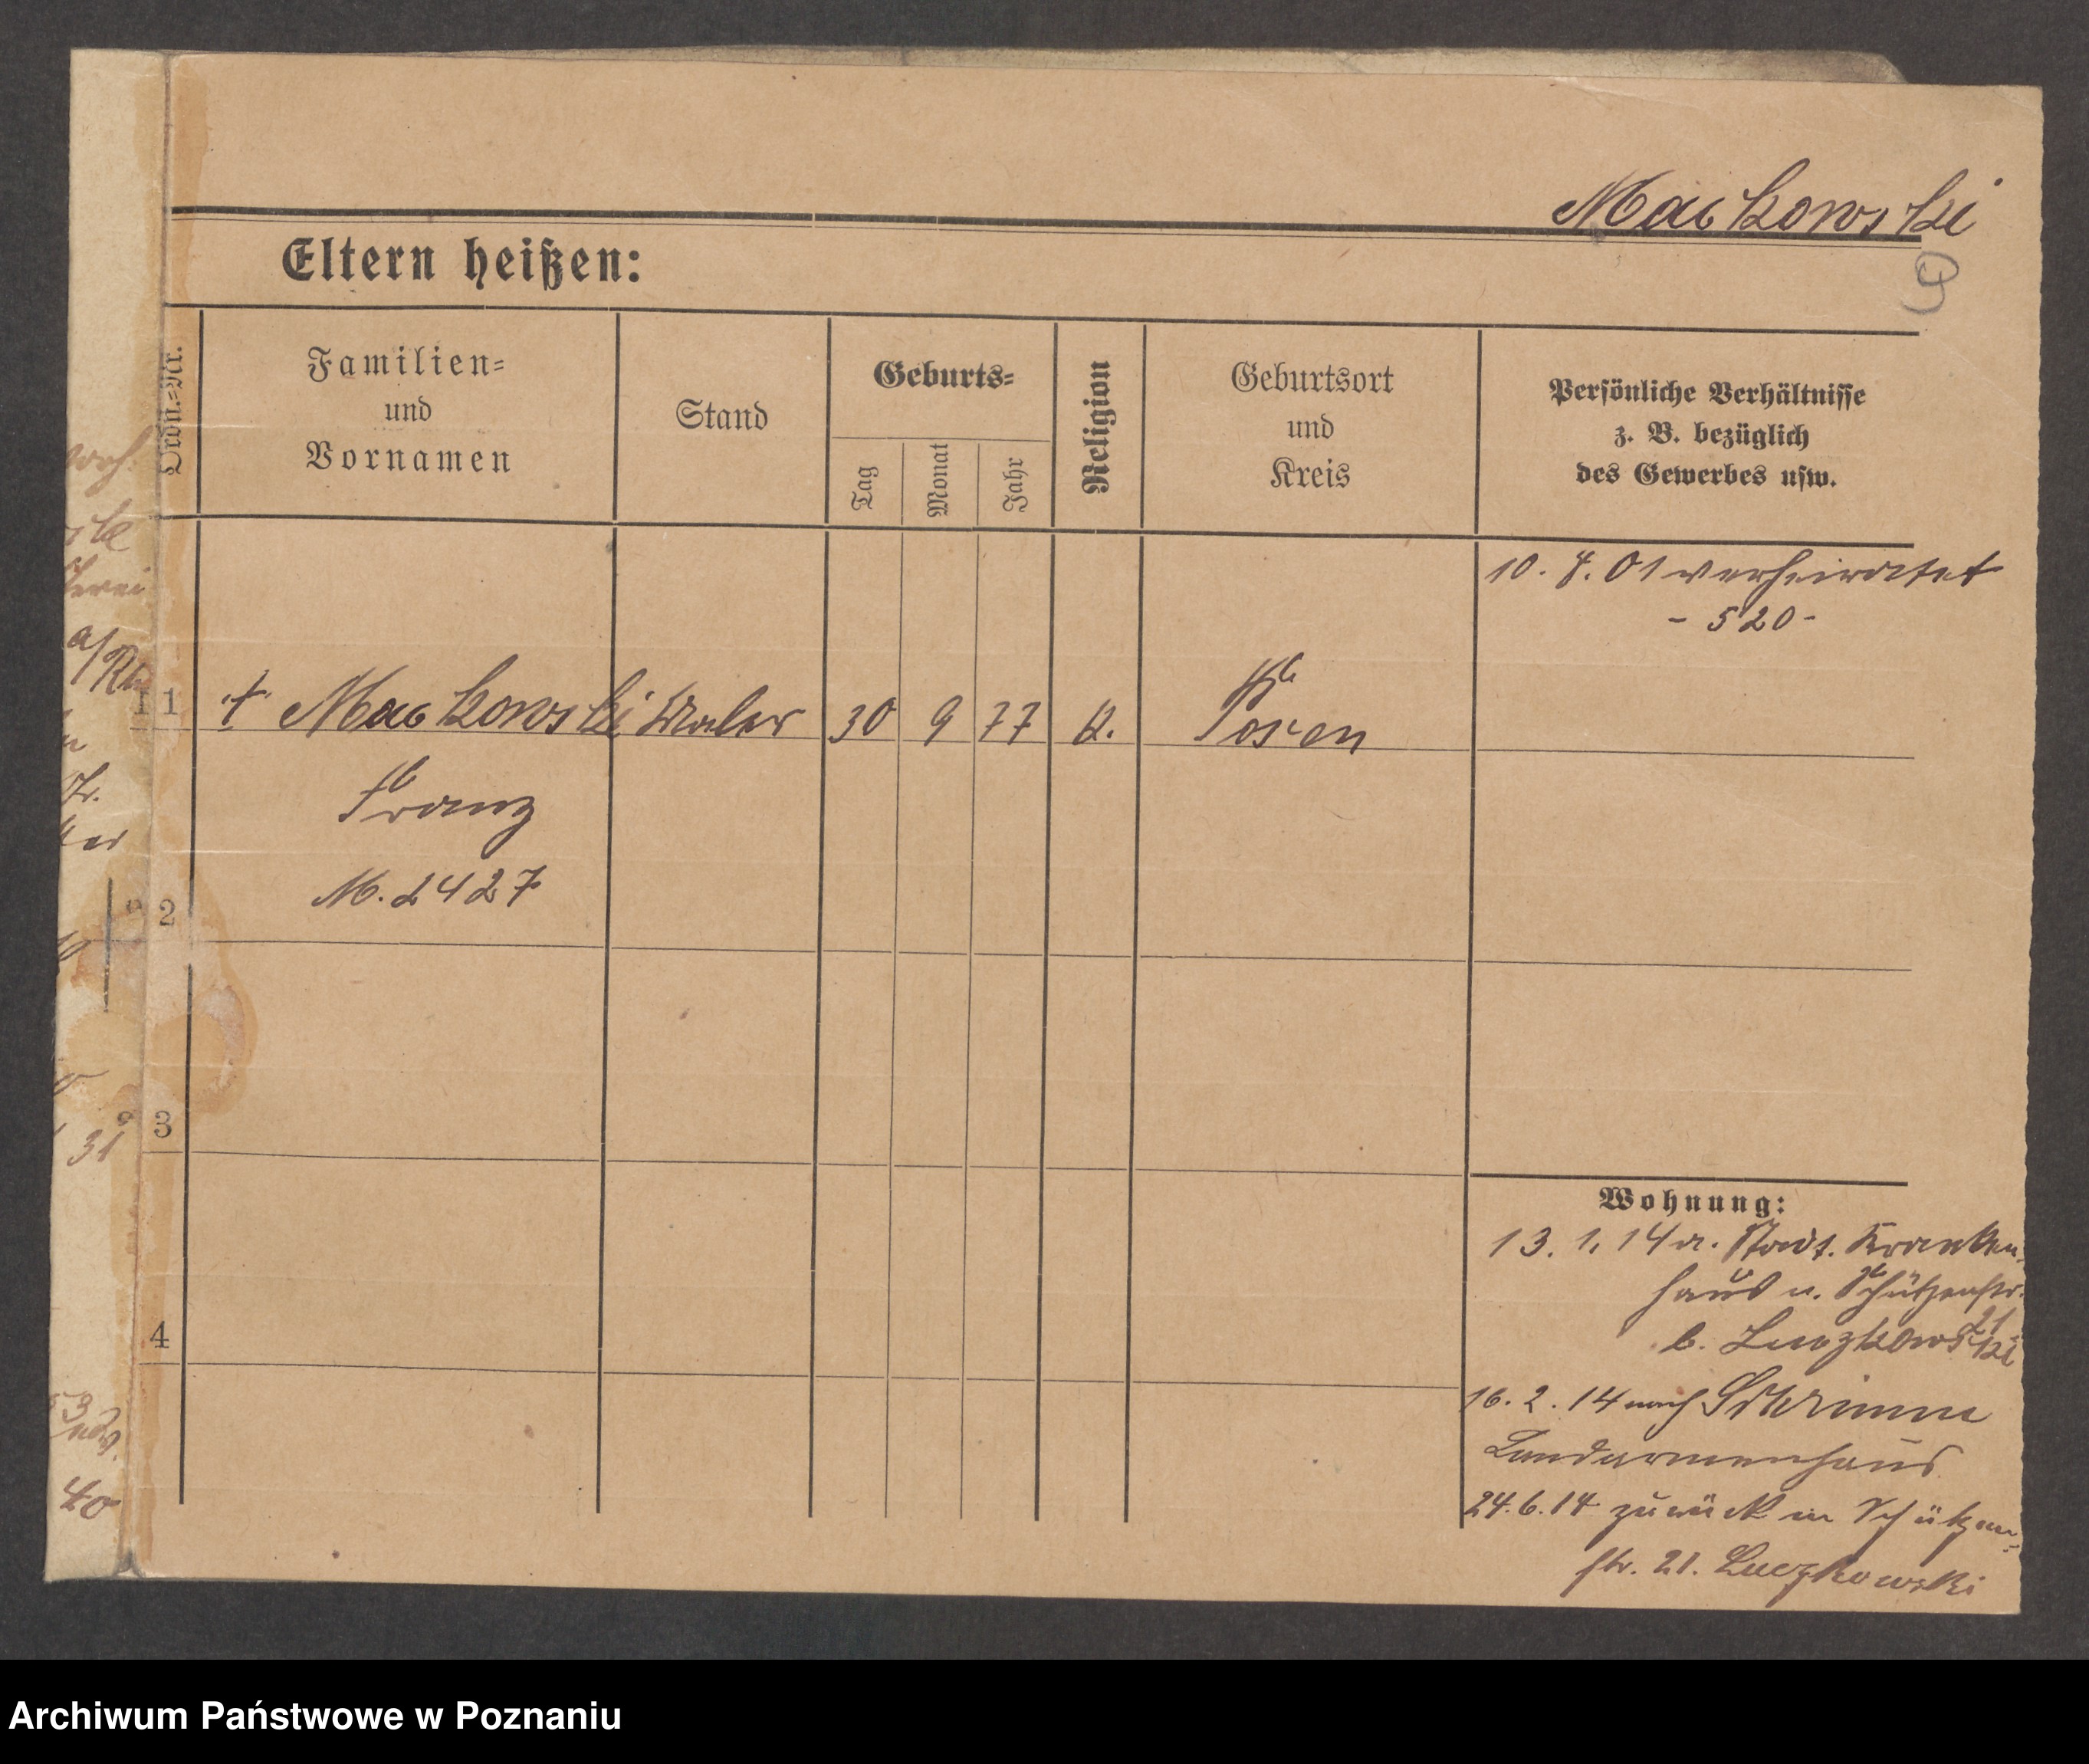 Mackowski
Eltern heißen:
Ordn.-Nr.
Familien-
und
Vornamen
Stand
Geburts-
Tag
Monat
Jahr
Religion
Geburtsort
und
Kreis
Persönliche Verhältnisse
z. B. bezüglich
des Gewerbes usw.
10. 7. 01 verheiratet
- 520 -
1 † Mackowski Maler 30 9 77 k. Posen
Franz
M. 2427
2
3
4
Wohnung:
13. 1. 14 a. Stadt. Kranken-
haus n. Schützenstr.
21
b. Luczkowski
16. 2. 14 nach Schrimm
Landarmenhaus
24. 6. 14 zurück in Schützen-
str. 21. Luczkowski
a/Rh
31
40
Archiwum Państwowe w Poznaniu